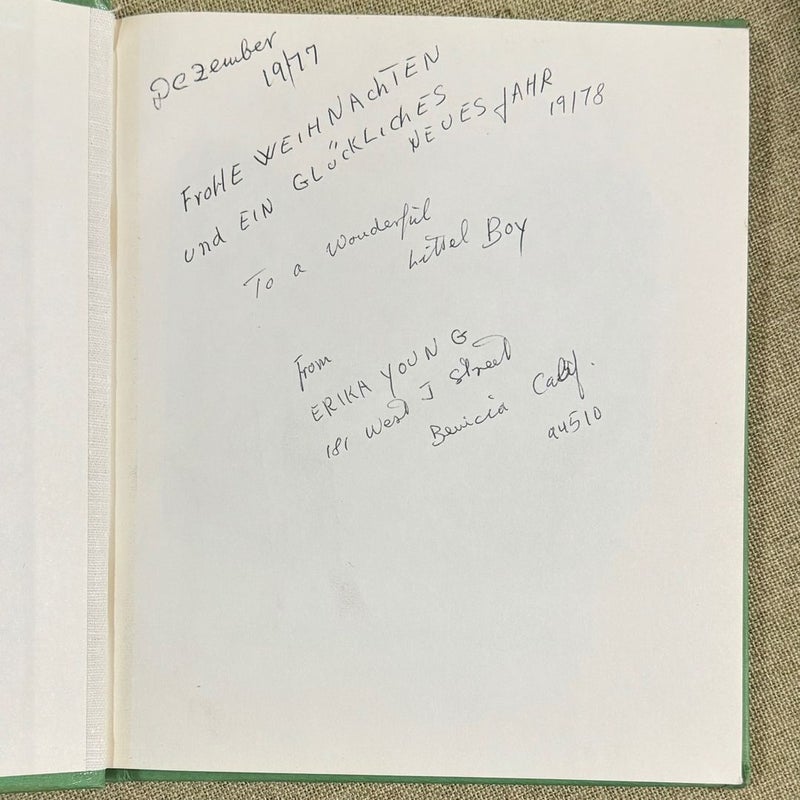 Dezember
19/77
FroHE WEIHNAchTEN
und EIN GLücKLIchES
NEUES JAHR
19/78
To a Wonderful
Littel Boy
From
ERIKA YOUNG
181 West J Street
Benicia Calif.
94510